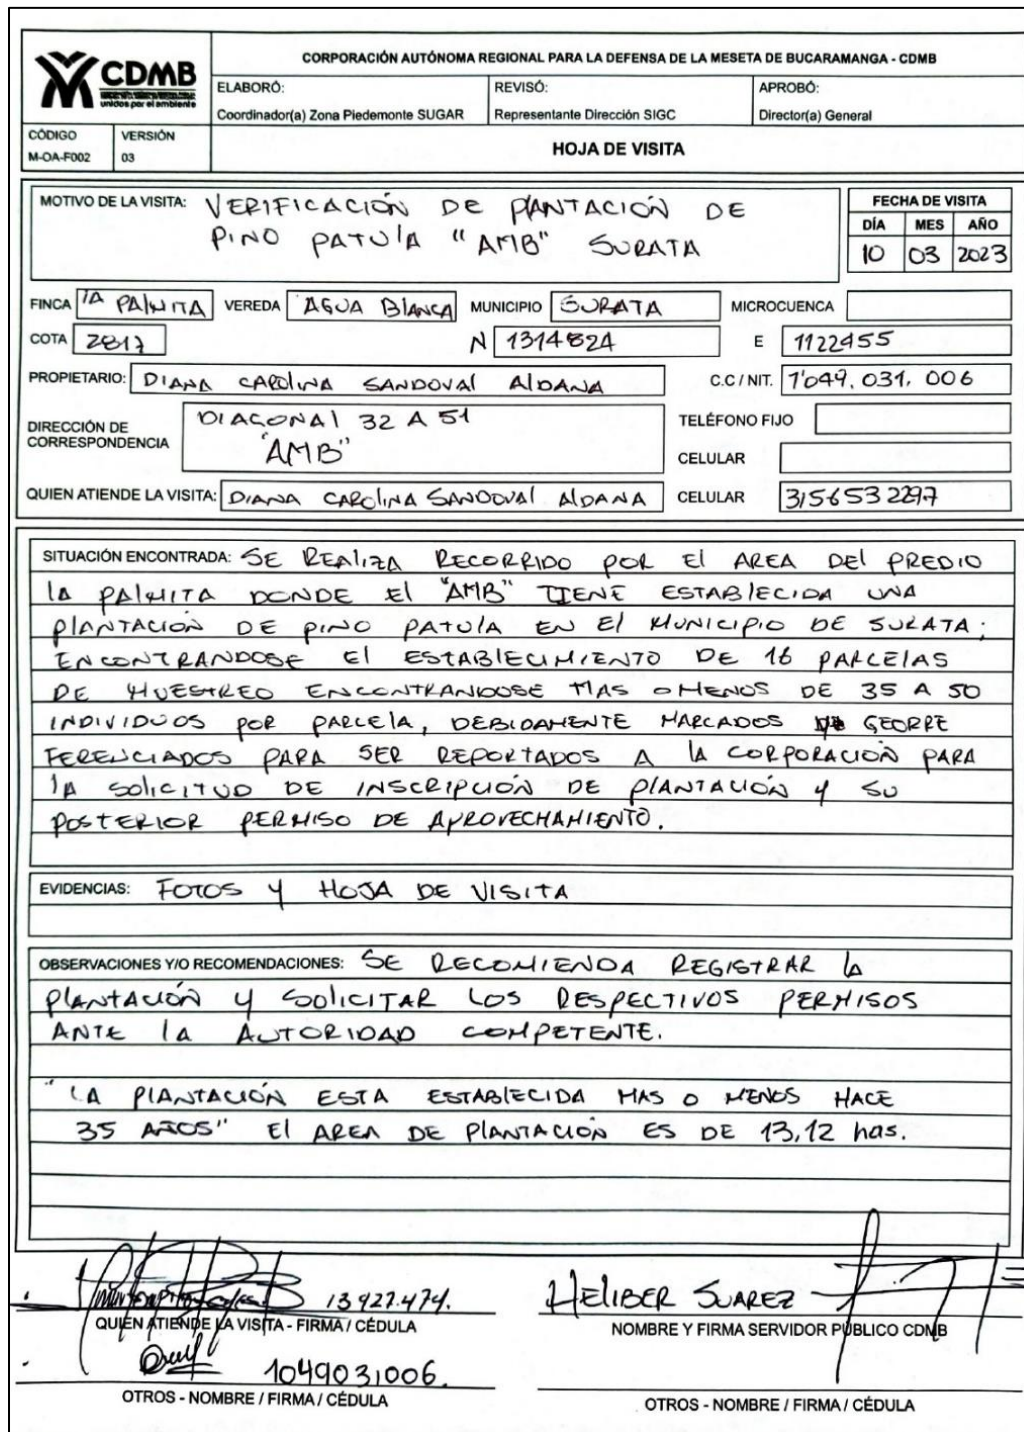 CDMB
unidos por el ambiente
CORPORACIÓN AUTÓNOMA REGIONAL PARA LA DEFENSA DE LA MESETA DE BUCARAMANGA - CDMB
ELABORÓ:
Coordinador(a) Zona Piedemonte SUGAR
REVISÓ:
Representante Dirección SIGC
APROBÓ:
Director(a) General
CÓDIGO
M-OA-F002
VERSIÓN
03
HOJA DE VISITA
MOTIVO DE LA VISITA: VERIFICACIÓN DE PLANTACIÓN DE
PINO PATULA "AMB" SURATA
FECHA DE VISITA
DÍA MES AÑO
10 03 2023
FINCA LA PALMITA VEREDA AGUA BLANCA MUNICIPIO SURATA MICROCUENCA
COTA 2817 N 1314824 E 1122455
PROPIETARIO: DIANA CAROLINA SANDOVAL ALDANA C.C / NIT. 1'049.031.006
DIRECCIÓN DE CORRESPONDENCIA
DIAGONAL 32 A 51
"AMB"
TELÉFONO FIJO
CELULAR
QUIEN ATIENDE LA VISITA: DIANA CAROLINA SANDOVAL ALDANA CELULAR 3156532297
SITUACIÓN ENCONTRADA: SE REALIZA RECORRIDO POR EL AREA DEL PREDIO
LA PALMITA DONDE EL "AMB" TIENE ESTABLECIDA UNA
PLANTACIÓN DE PINO PATULA EN EL MUNICIPIO DE SURATA;
ENCONTRANDOSE EL ESTABLECIMIENTO DE 16 PARCELAS
DE MUESTREO ENCONTRANDOSE MAS O MENOS DE 35 A 50
INDIVIDUOS POR PARCELA, DEBIDAMENTE MARCADOS GEORRE
FERENCIADOS PARA SER REPORTADOS A LA CORPORACIÓN PARA
LA SOLICITUD DE INSCRIPCIÓN DE PLANTACIÓN Y SU
POSTERIOR PERMISO DE APROVECHAMIENTO.
EVIDENCIAS: FOTOS Y HOJA DE VISITA
OBSERVACIONES Y/O RECOMENDACIONES: SE RECOMIENDA REGISTRAR LA
PLANTACIÓN Y SOLICITAR LOS RESPECTIVOS PERMISOS
ANTE LA AUTORIDAD COMPETENTE.
"LA PLANTACIÓN ESTA ESTABLECIDA MAS O MENOS HACE
35 AÑOS" EL AREA DE PLANTACIÓN ES DE 13,12 has.
13.927.474.
QUIEN ATIENDE LA VISITA - FIRMA / CÉDULA
HELIBER SUAREZ
NOMBRE Y FIRMA SERVIDOR PÚBLICO CDMB
1049031006.
OTROS - NOMBRE / FIRMA / CÉDULA
OTROS - NOMBRE / FIRMA / CÉDULA